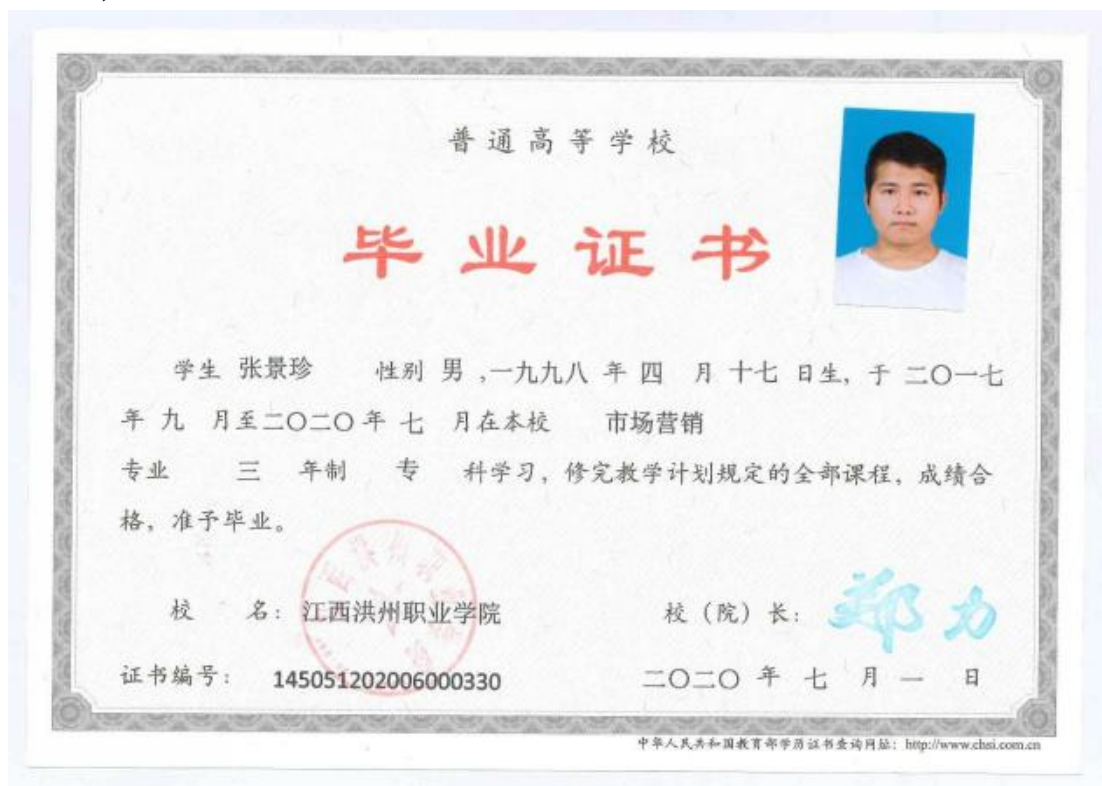 普通高等学校
毕业证书
学生 张景珍 性别 男 ,一九九八 年 四 月 十七 日生, 于 二〇一七
年 九 月至二〇二〇年 七 月在本校 市场营销
专业 三 年制 专 科学习, 修完教学计划规定的全部课程, 成绩合
格, 准予毕业。
校 名: 江西洪州职业学院 校(院)长: 郑力
证书编号: 145051202006000330 二〇二〇 年 七 月 一 日
中华人民共和国教育部学历证书查询网址: http://www.chsi.com.cn